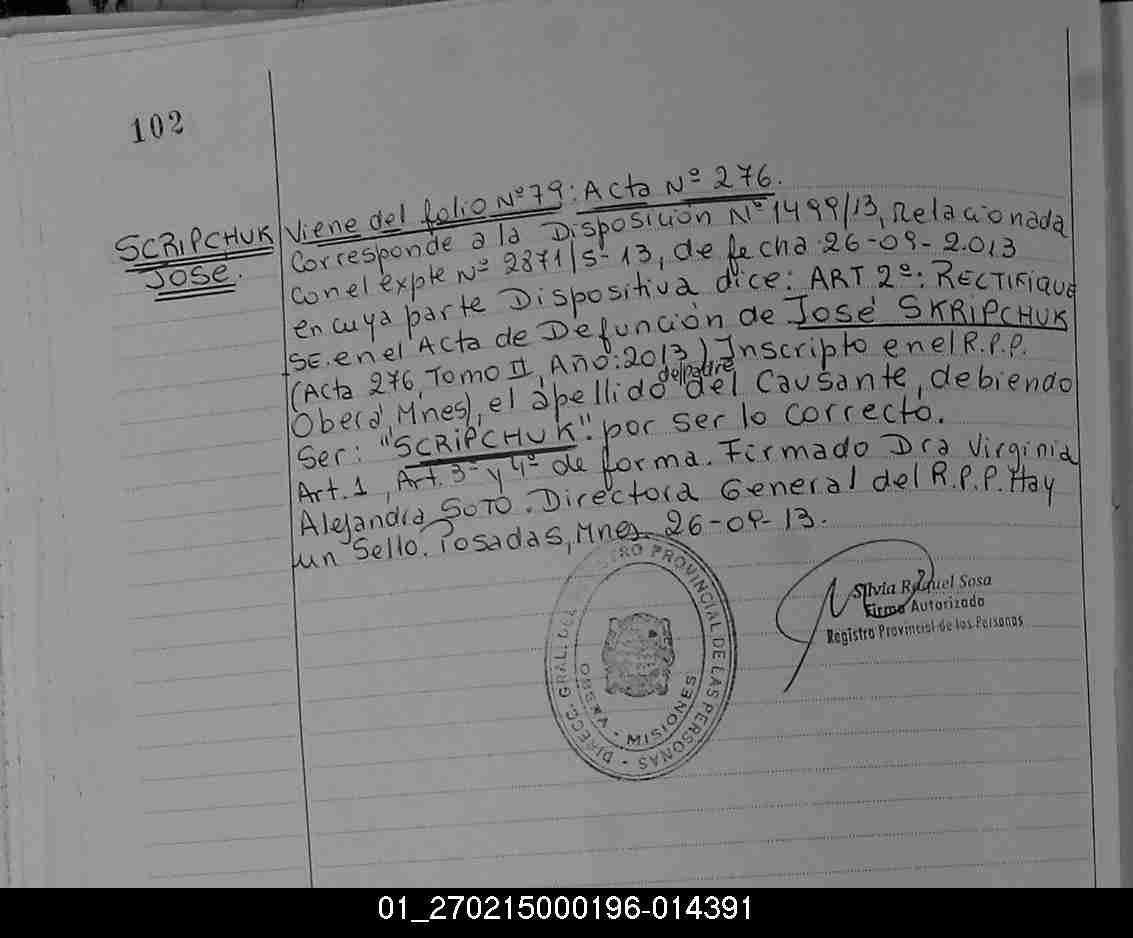 102
SCRIPCHUK
JOSE.
Viene del folio Nº 79: Acta Nº 276.
Corresponde a la Disposición Nº 1499/13, Relacionada
con el expte Nº 2871/S-13, de fecha 26-09-2.013
en cuya parte Dispositiva dice: ART 2º: RECTIFIQUE
SE. en el Acta de Defunción de José SKRIPCHUK
(Acta 276, Tomo II, Año: 2013) Inscripto en el R.P.P.
del padre
Oberá, Mnes), el apellido del Causante, debiendo
Ser: "SCRIPCHUK". por ser lo correcto.
Art. 1, Art. 3º y 4º de forma. Firmado Dra Virginia
Alejandra SOTO. Directora General del R.P.P. Hay
un Sello. Posadas, Mnes. 26-09-13.
DIRECC. GRAL. DEL REGISTRO PROVINCIAL DE LAS PERSONAS
MISIONES
Silvia Raquel Sosa
Firma Autorizada
Registro Provincial de las Personas
01_270215000196-014391